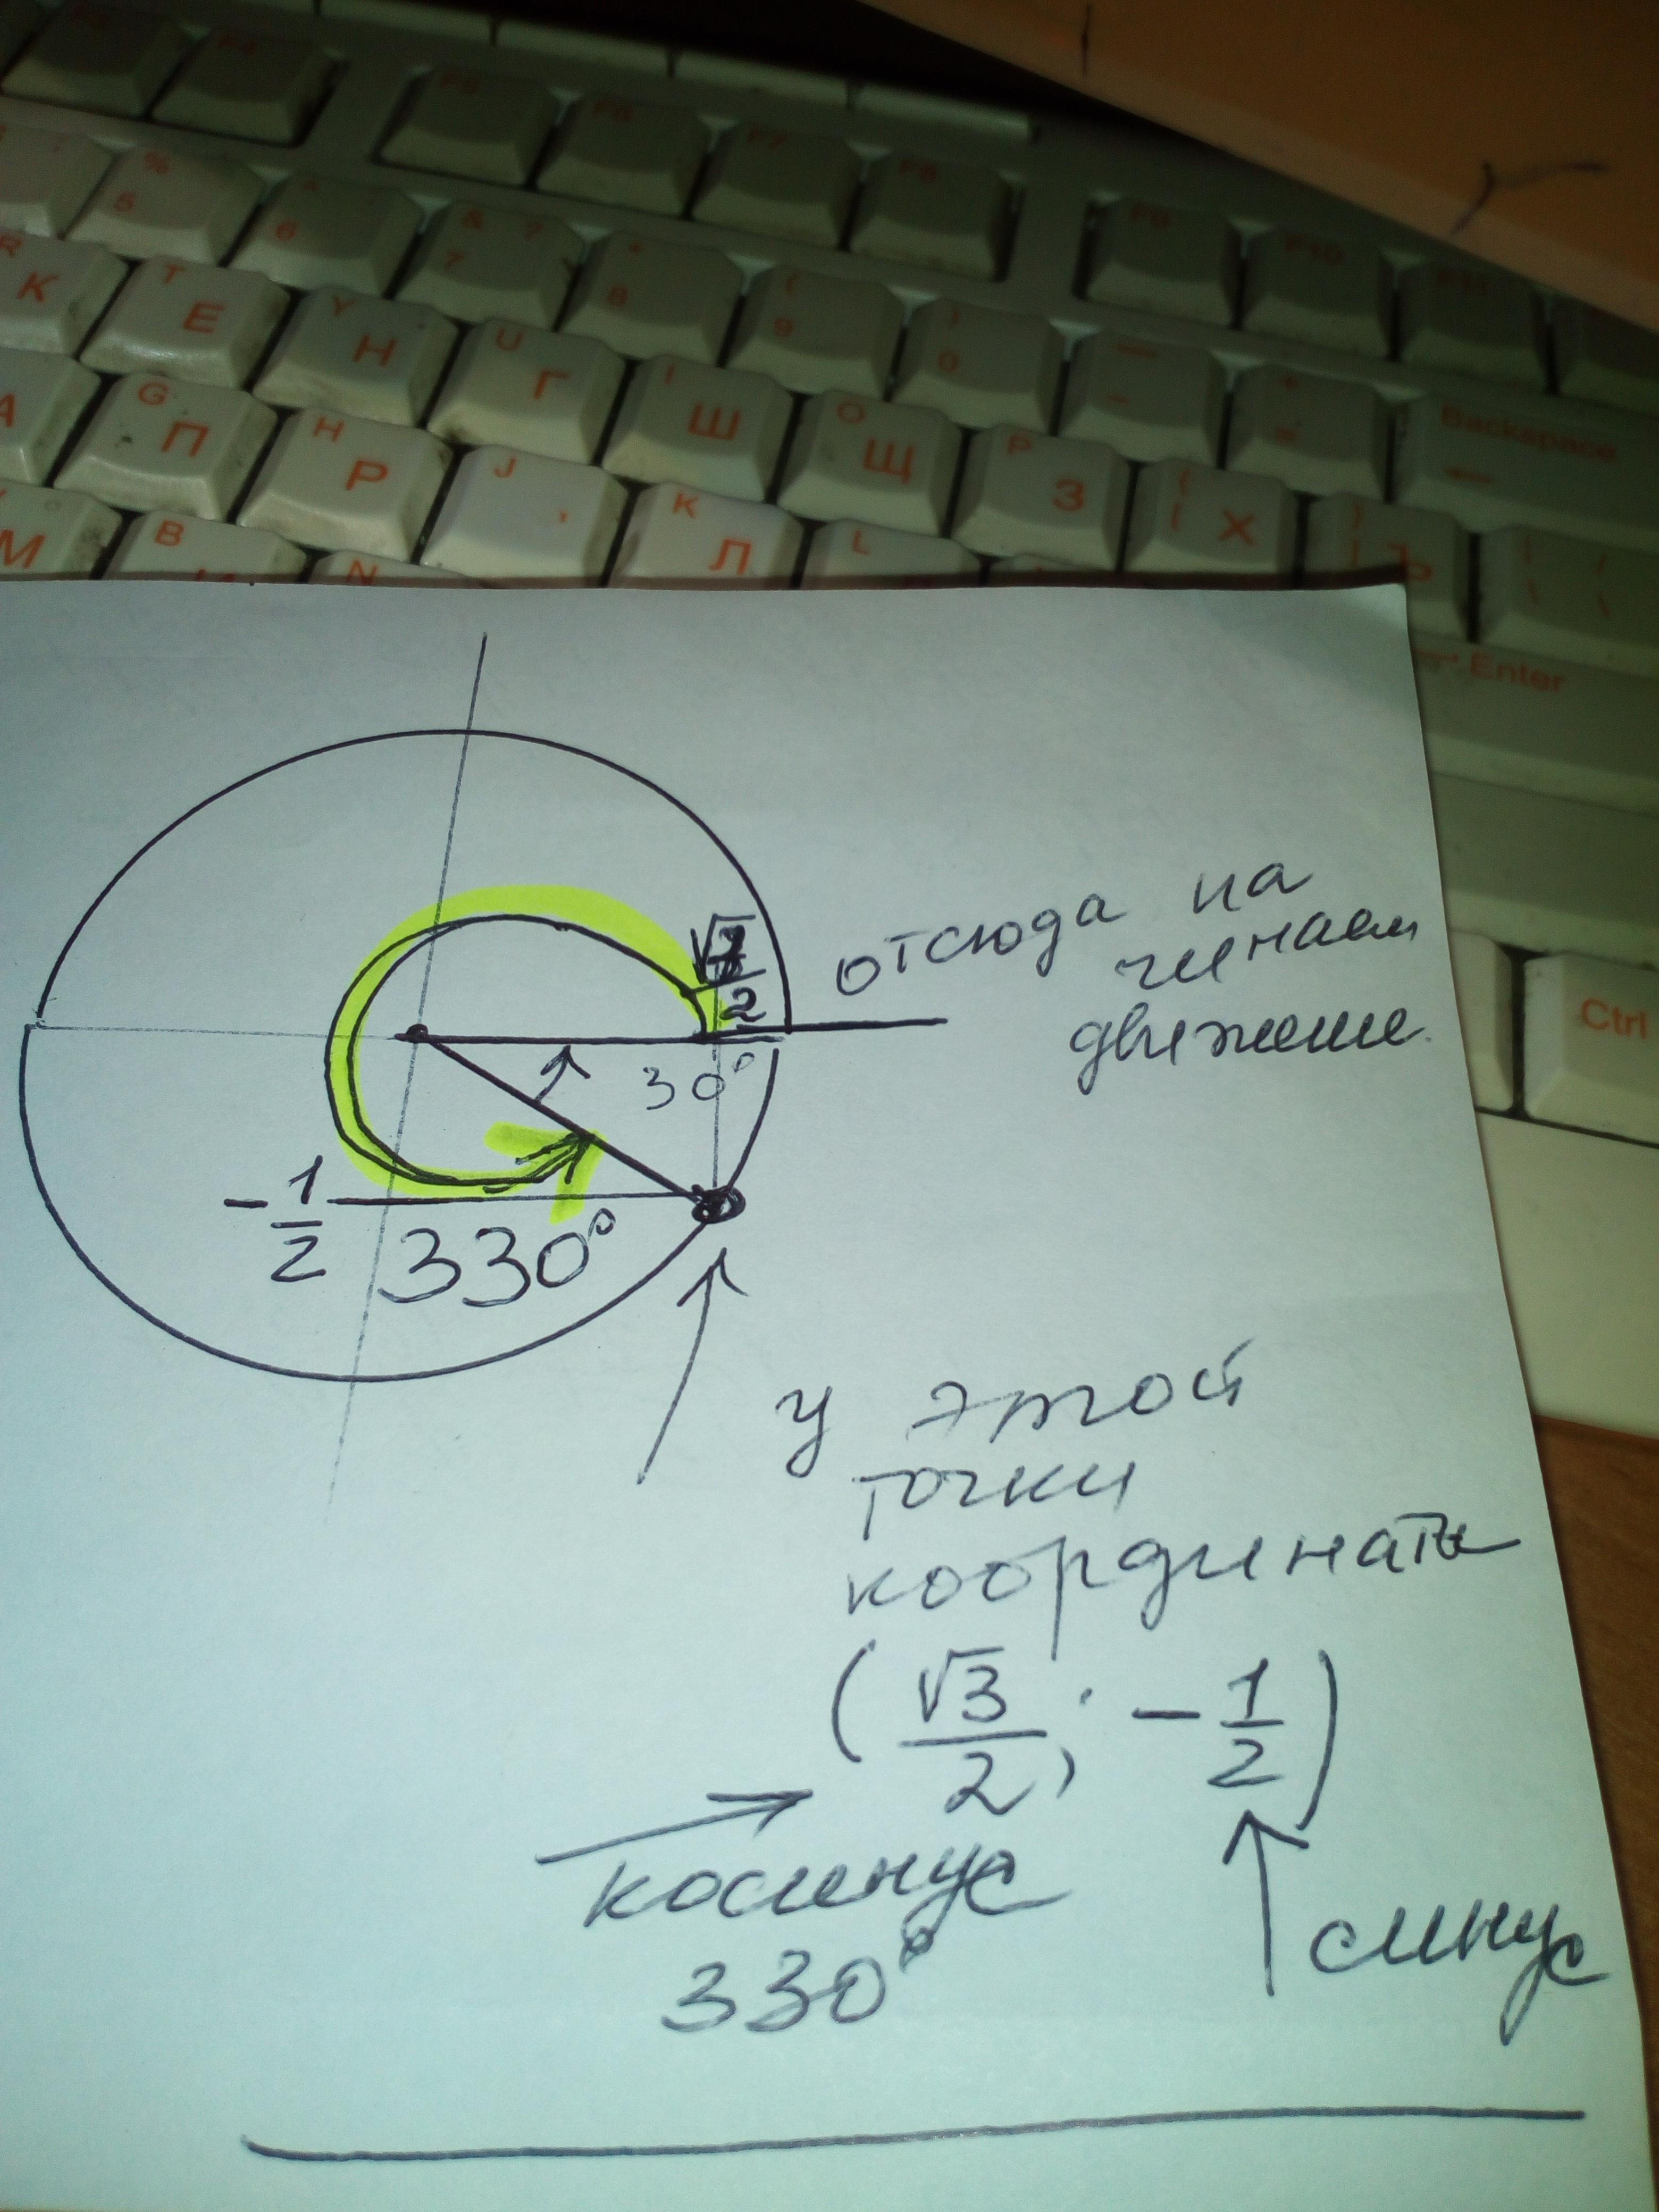 F4
F5
F6
F7
F8
F9
F10
%
5
^
6
& ?
7
*
8
(
9
)
0
Backspace
←
R
К
T
Е
Y
Н
U
Г
I
Ш
O
Щ
P
З
Х
А
G
П
H
Р
J
K
Л
L
М
B
N
Enter
Ctrl
√3
2
отсюда на
чинаем
движение
30°
-1
2
330°
у этой
точки
координаты
(√3/2; -1/2)
косинус
330°
синус